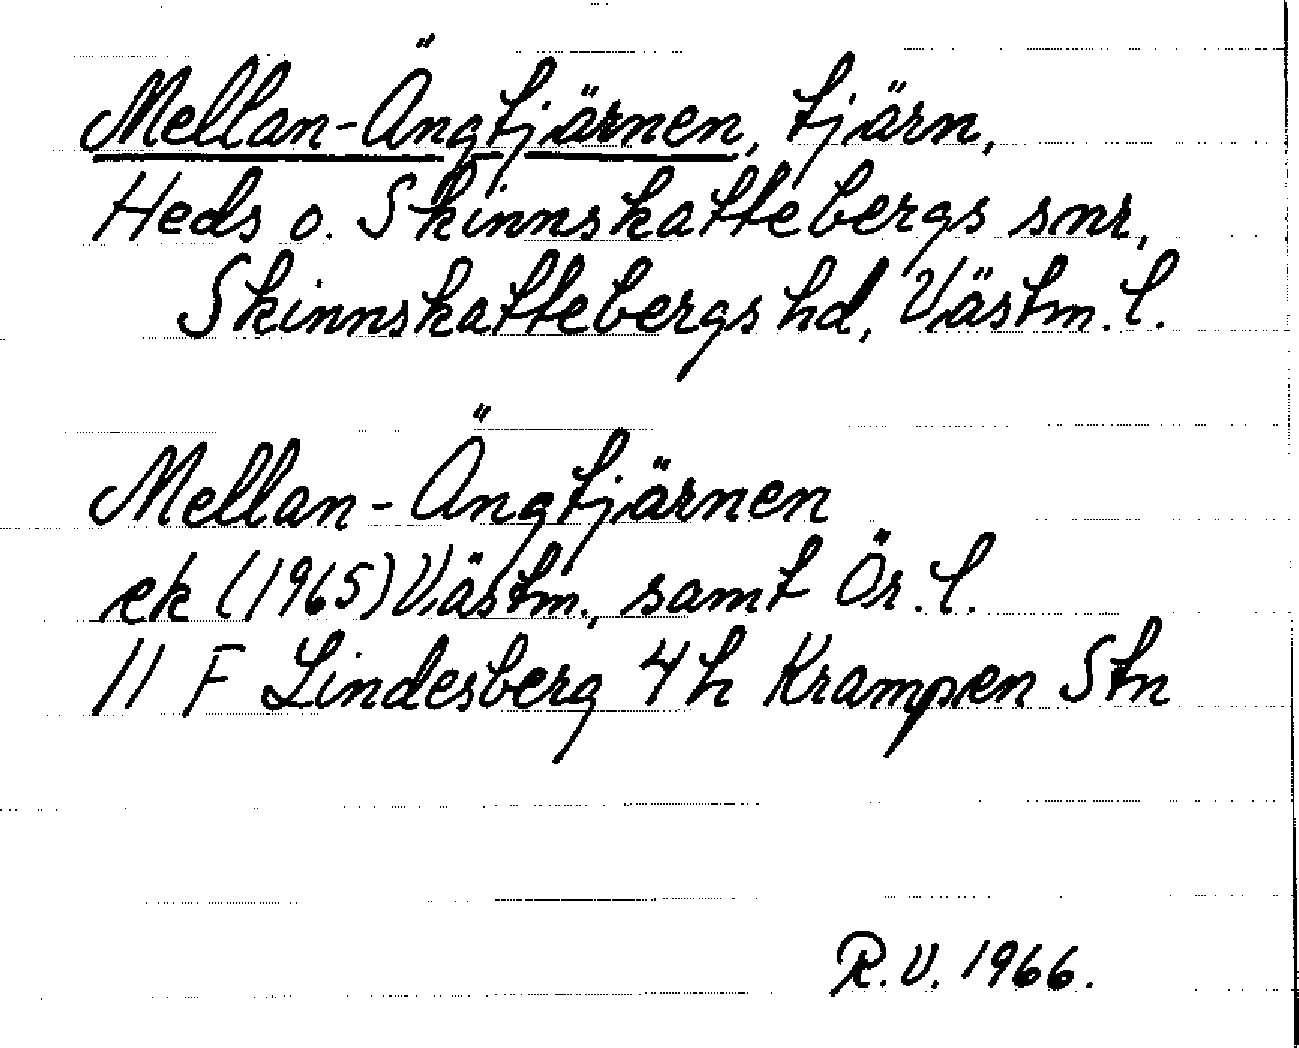 Mellan-Ängtjärnen, tjärn,
Heds o. Skinnskattebergs snr,
Skinnskattebergs hd, Västm. l.
Mellan-Ängtjärnen
ek (1965) Västm., samt Ör. l.
11 F Lindesberg 4 h Krampen Stn
R.V. 1966.